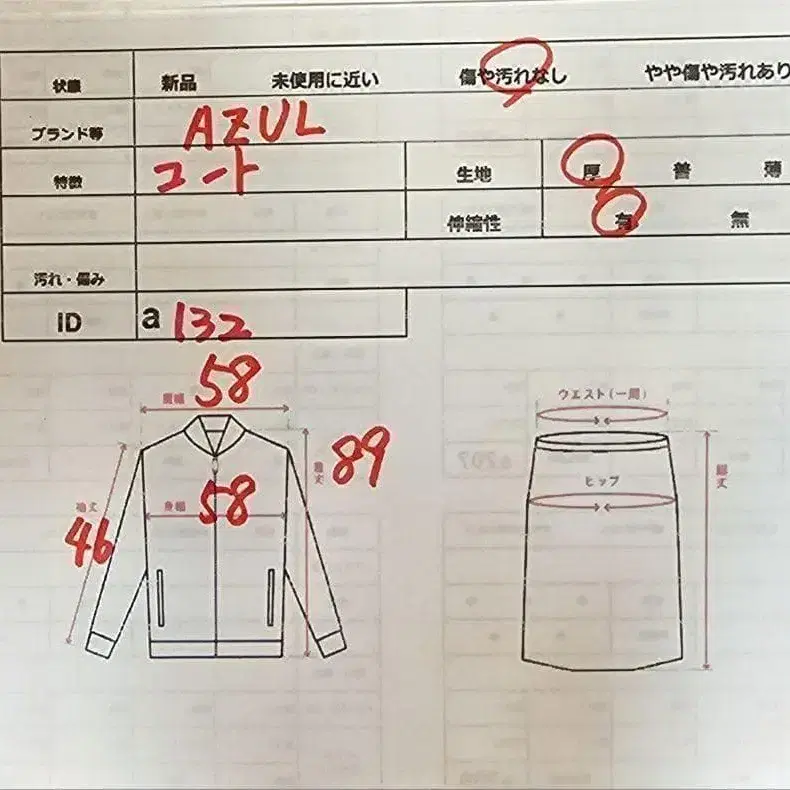 状態 新品 未使用に近い 傷や汚れなし やや傷や汚れあり
ブランド等 AZUL
特徴 コート 生地 厚 善 薄
伸縮性 有 無
汚れ・傷み
ID a 132
肩幅 58
ウエスト(一周)
着丈 89
総丈
ヒップ
袖丈 46
身幅 58